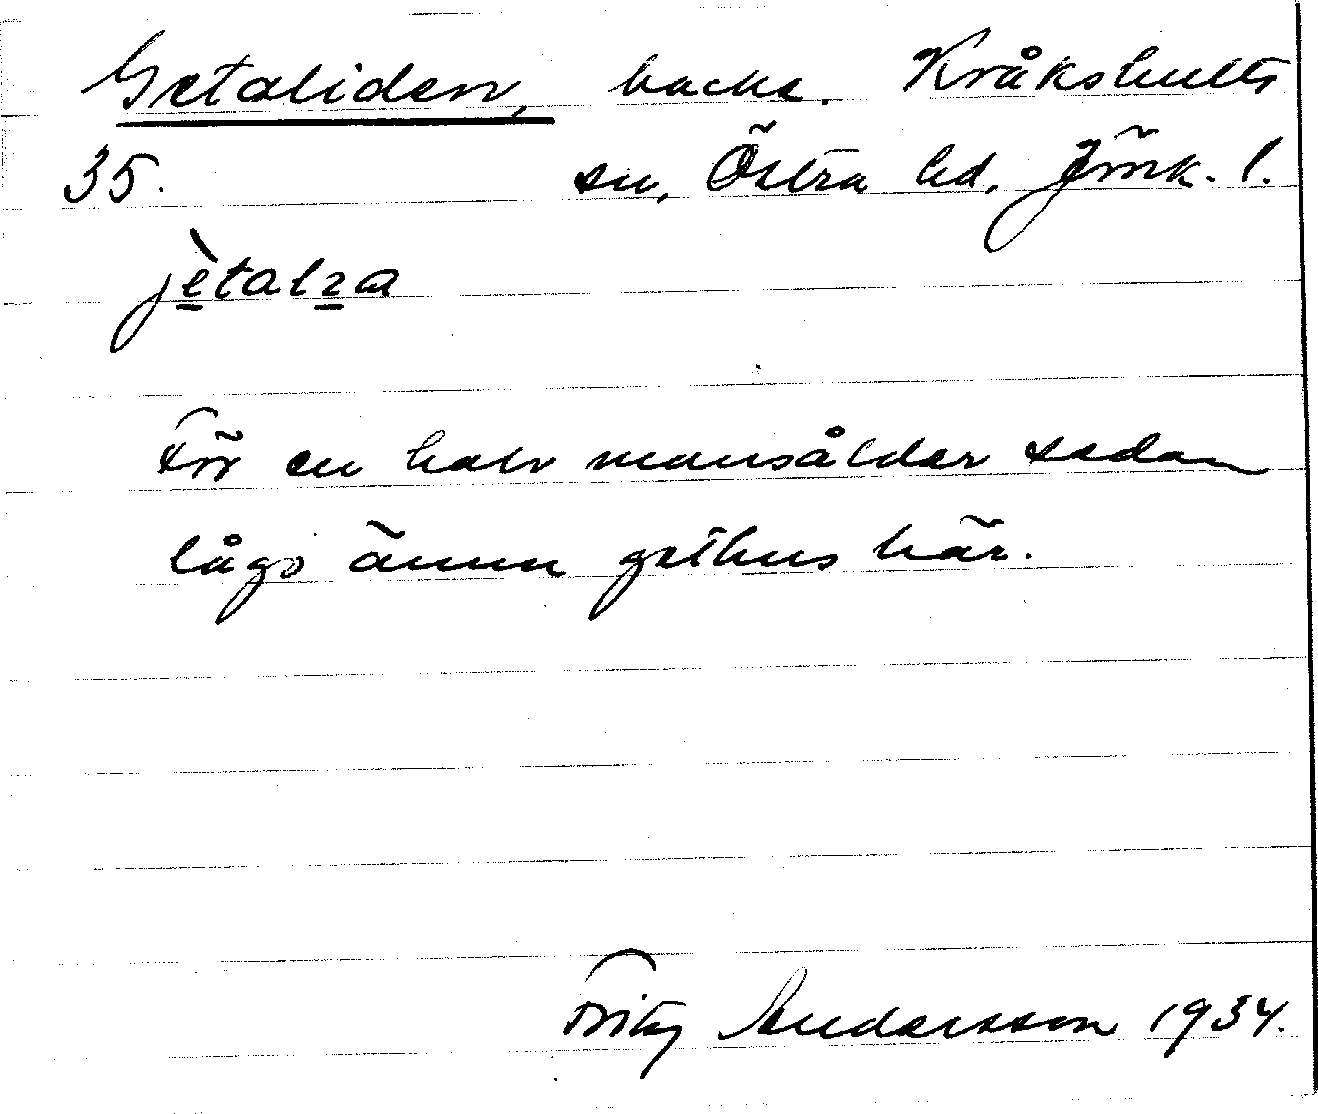 Getaliden, backe. Kråkshults
35. sn, Östra hd. Jönk. l.
jètalɪa
För en halv mansålder sedan
lågo ännu gethus här.
Fritz Andersson 1934.